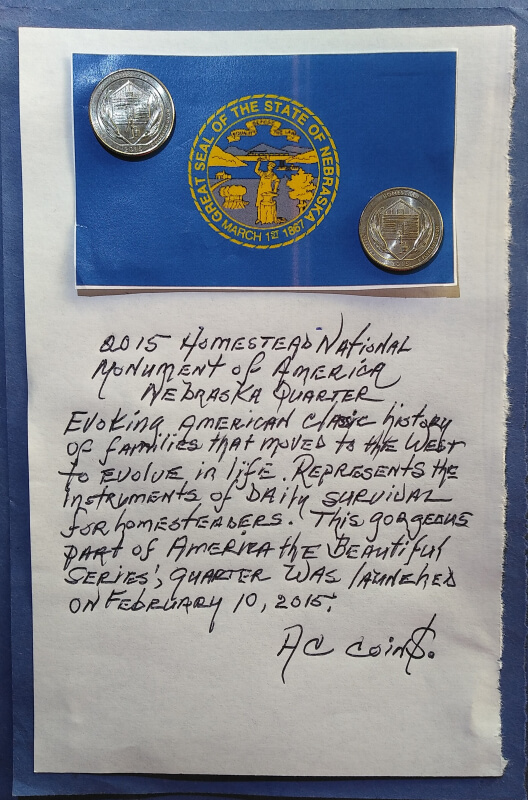 GREAT SEAL OF THE STATE OF NEBRASKA
MARCH 1ST 1867
HOMESTEAD
2015 HOMESTEAD NATIONAL
MONUMENT OF AMERICA
NEBRASKA QUARTER
EVOKING AMERICAN CLASIC history
of families that moved to the WEST
to EVOLVE in life. REPRESENTS the
instruments of DAily SURVIDAL
for homesteaders. This gorgeous
part of AMERICA the BEAUTIFUL
SERIES', QUARTER WAS lAUNCHED
ON FEBRUARY 10, 2015.
AC COIN$.